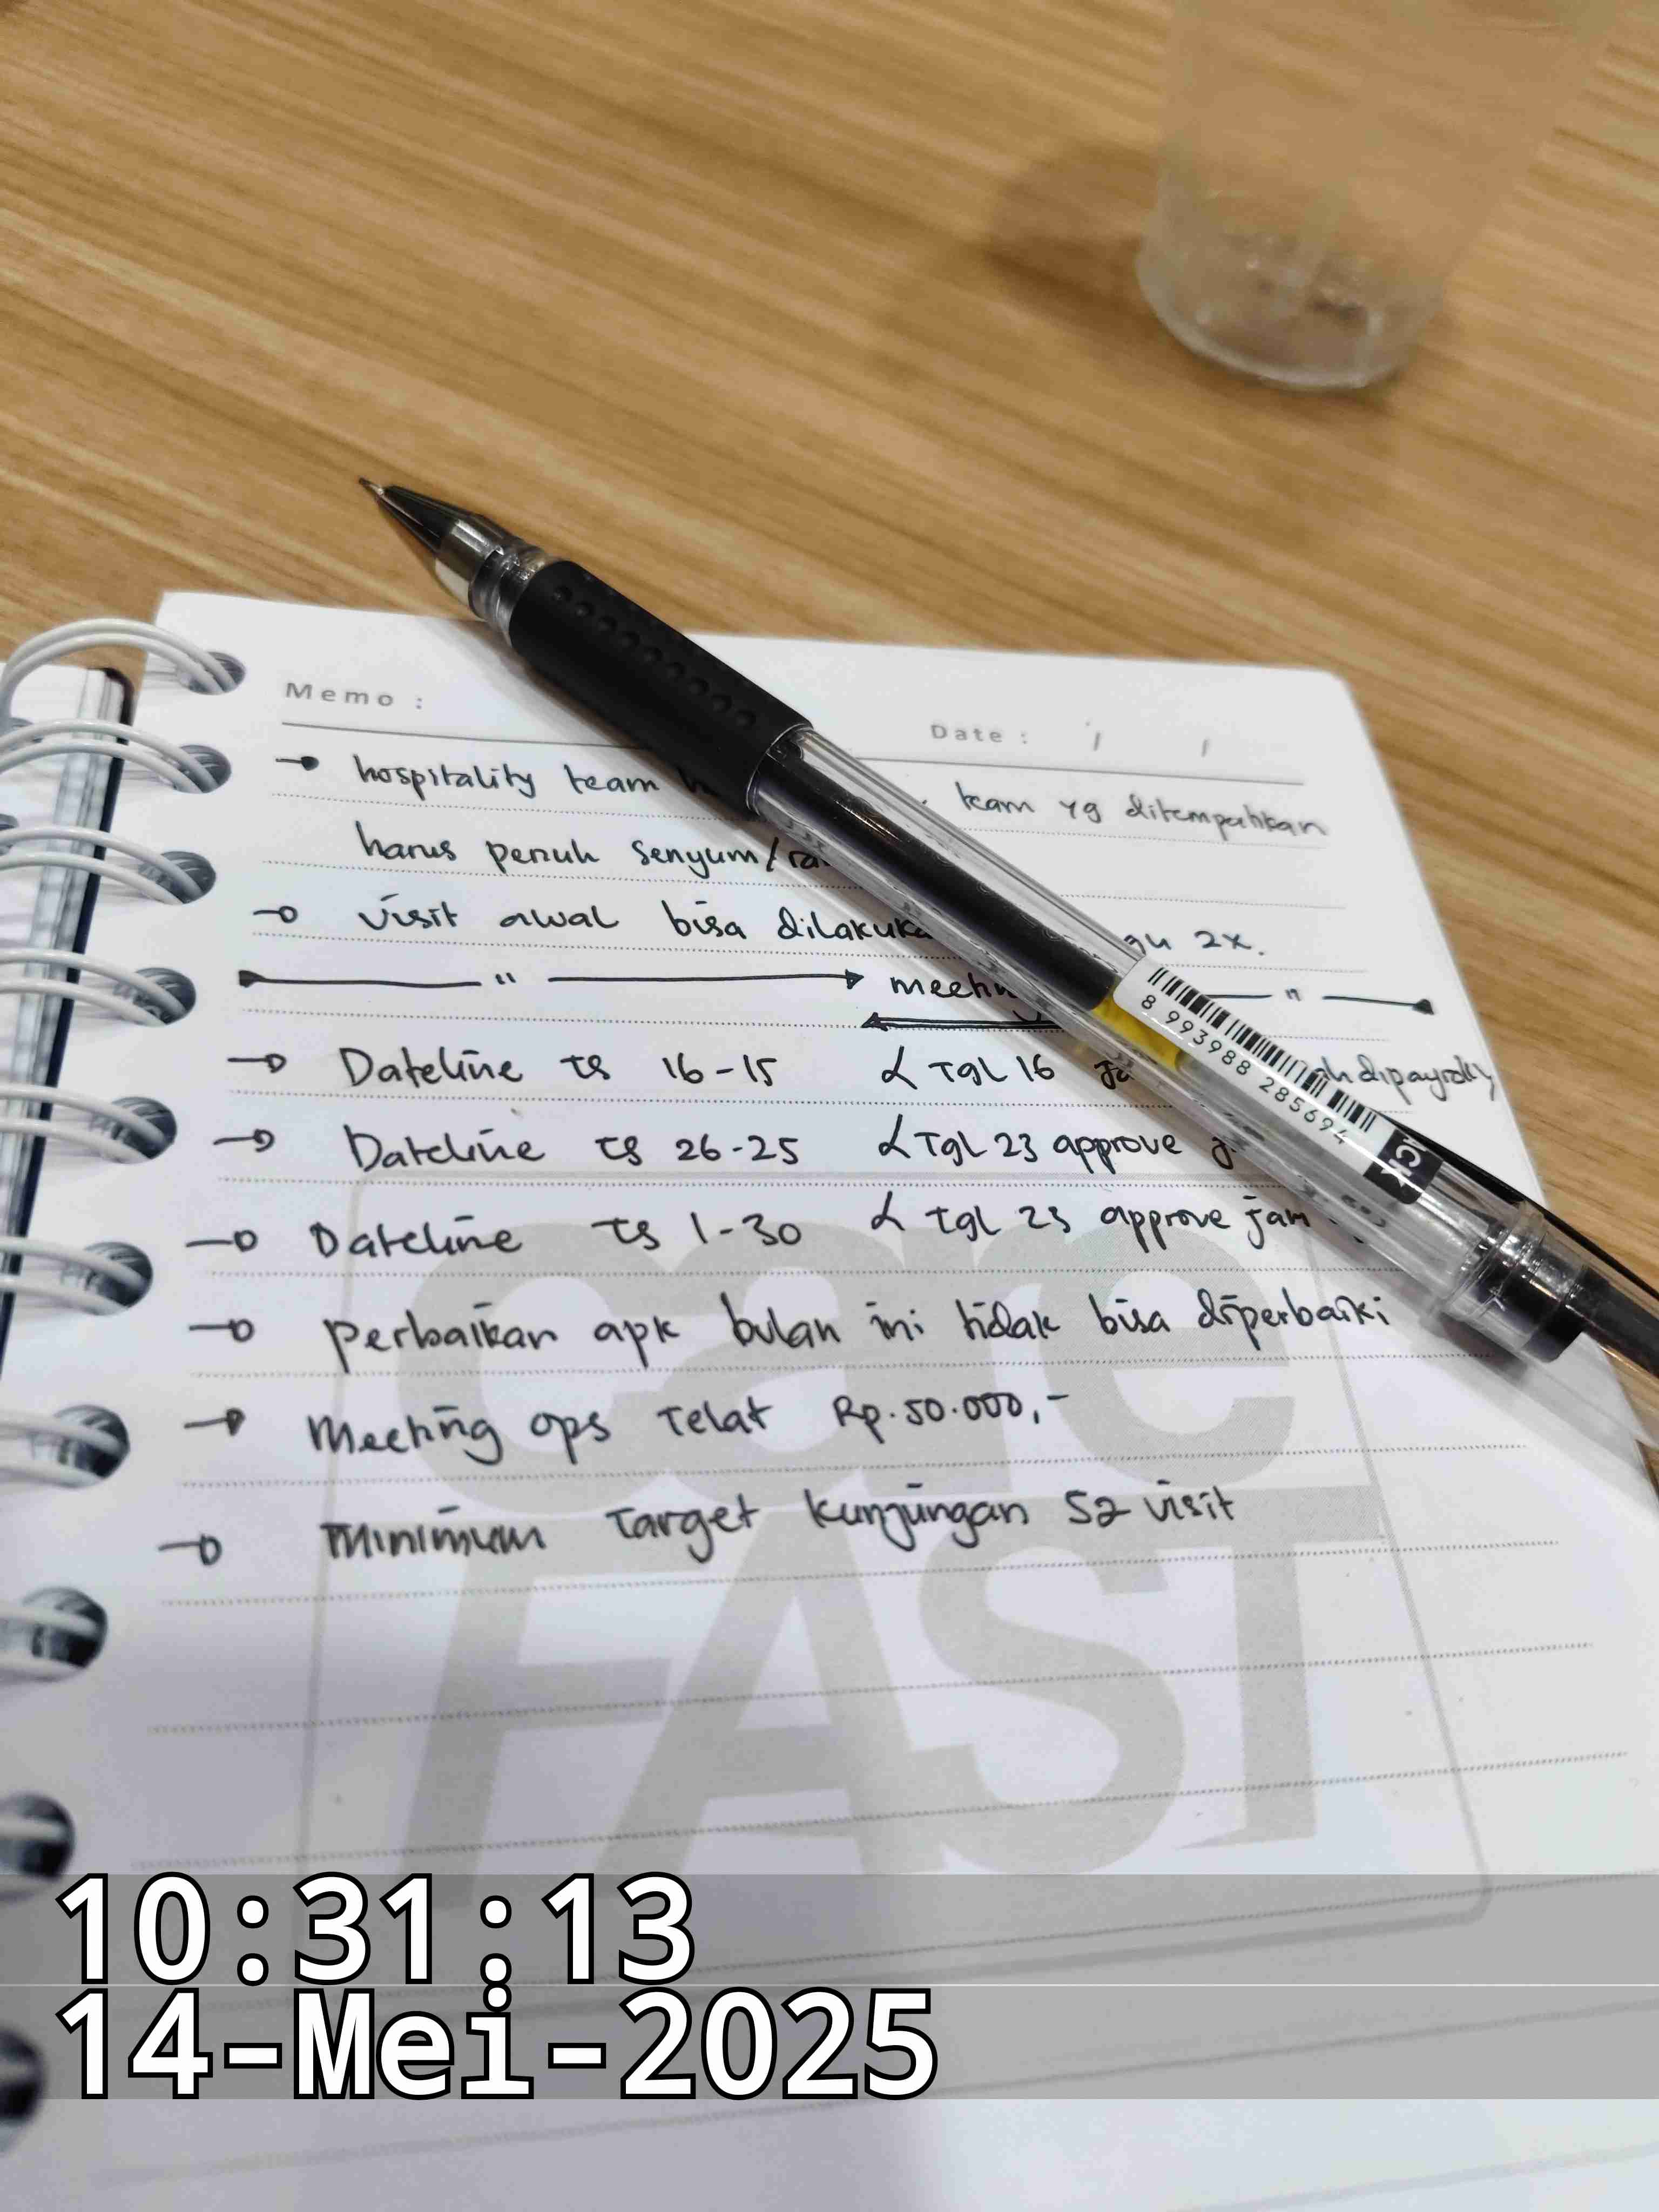 Memo :
Date : / /
hospitality team team yg ditempatkan
harus penuh senyum/
visit awal bisa 2x.
" "
Dateline TS 16-15 Tgl 16 dipayroll
Dateline TS 26-25 Tgl 23 approve
Dateline TS 1-30 Tgl 23 approve jam
perbaikan apk bulan ini tidak bisa diperbaiki
Meeting ops telat Rp.50.000,-
Minimum Target kunjungan 52 visit
8 993988 285694
care
FAST
10:31:13
14-Mei-2025